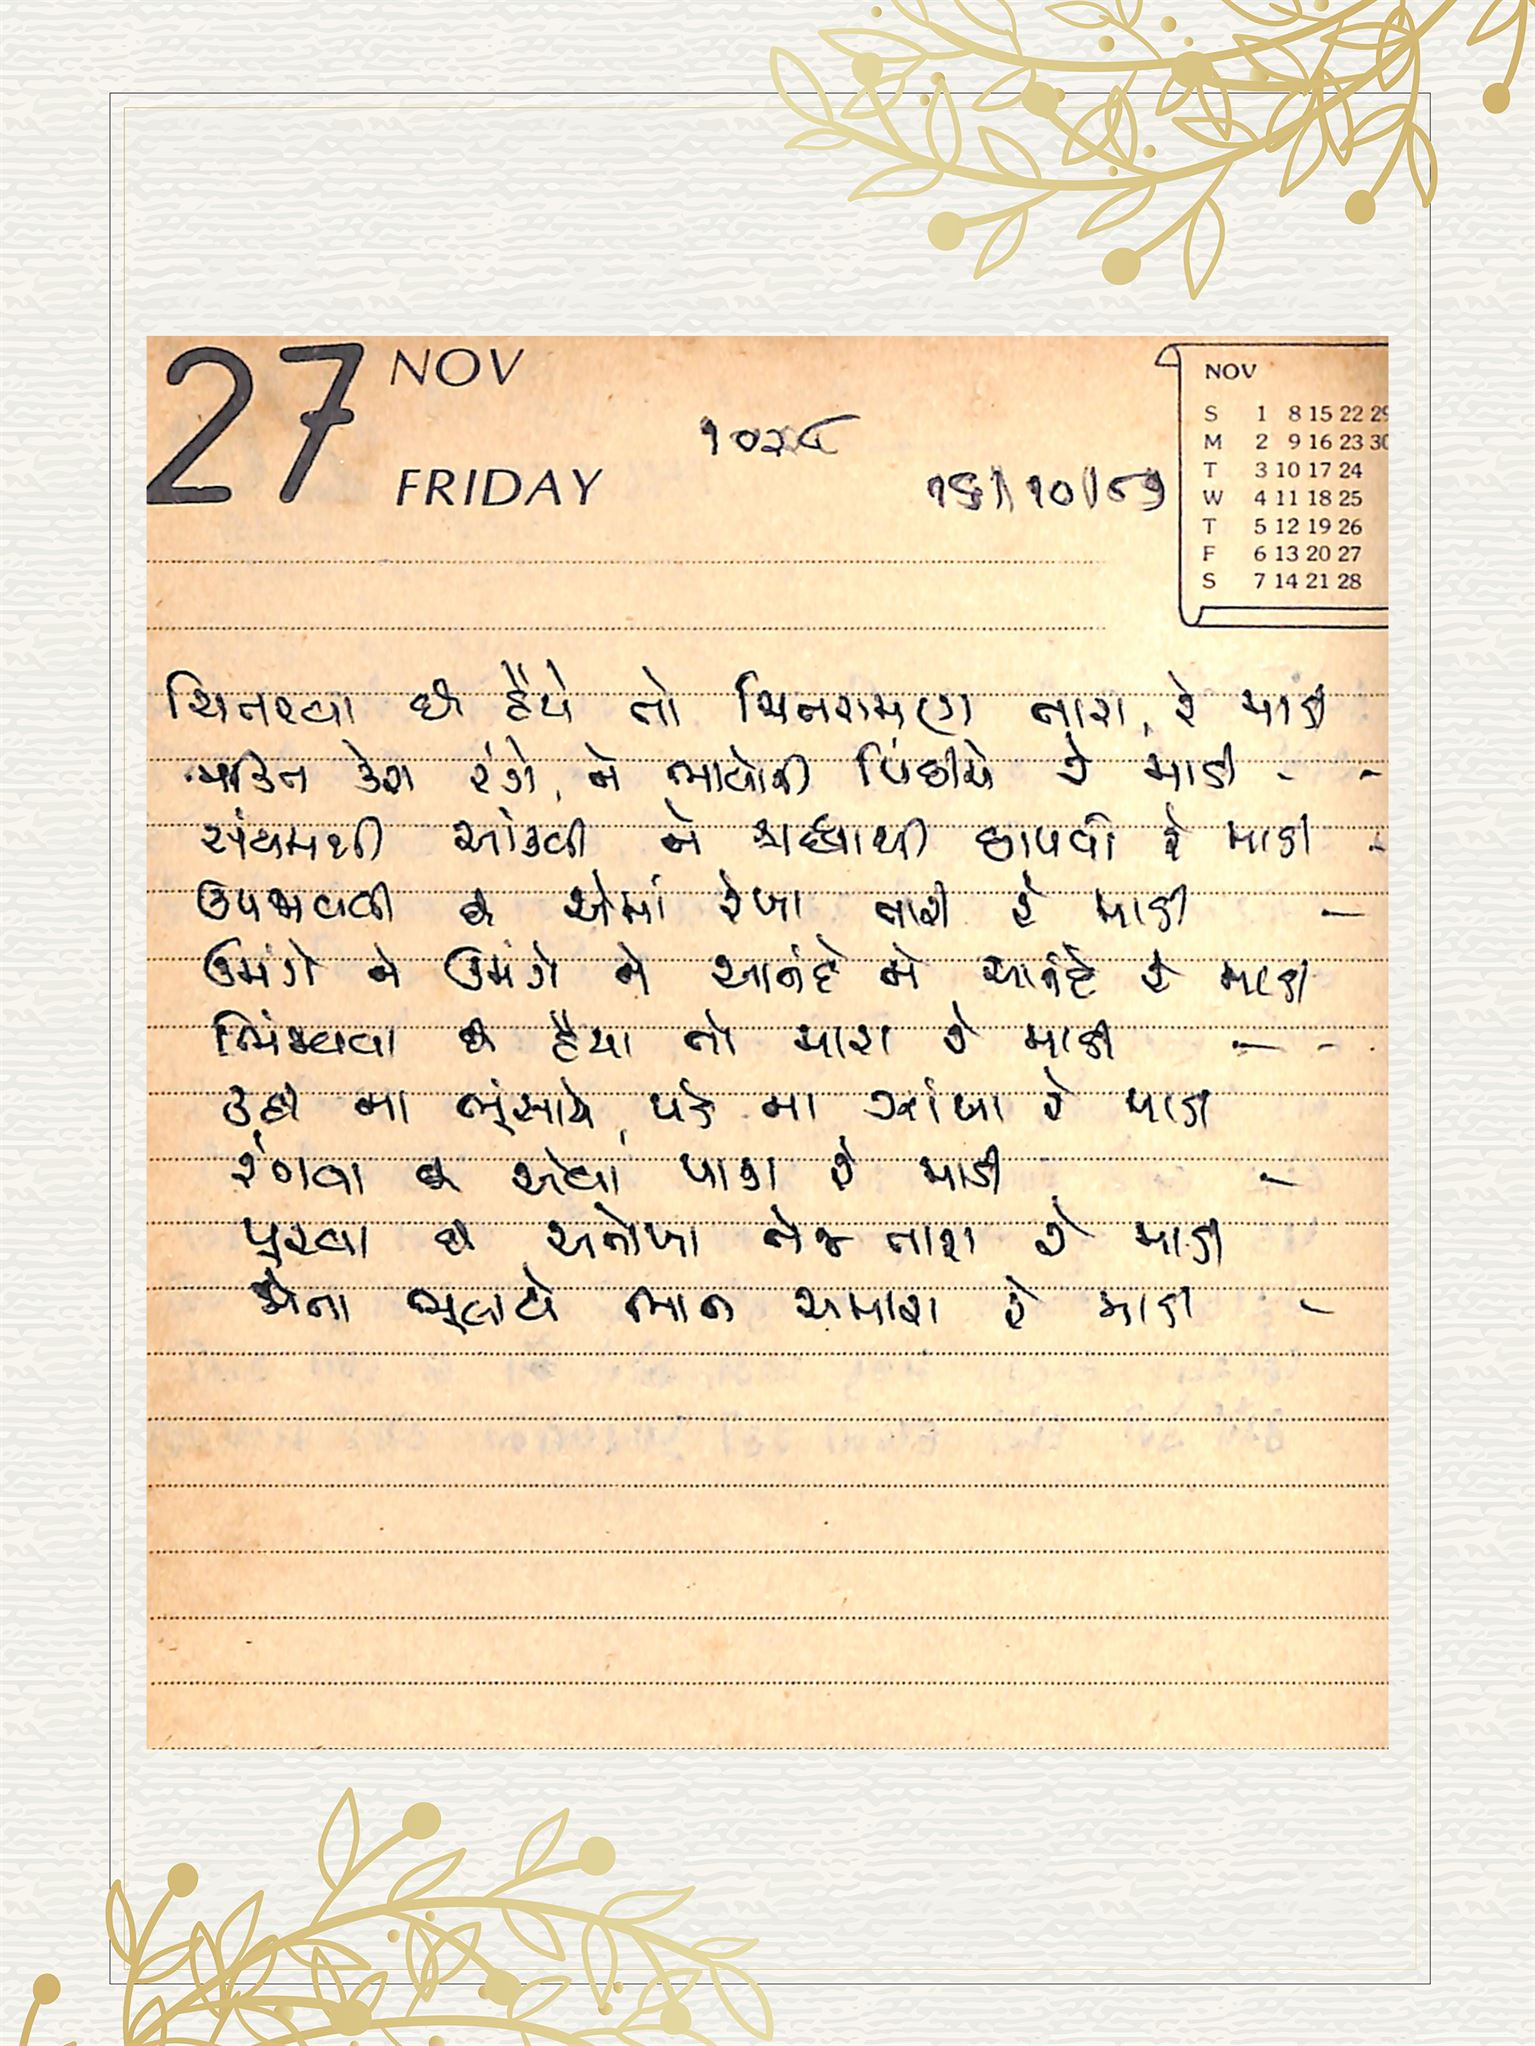 27 NOV
FRIDAY
૧૦૨૮
૧૬/૧૦/૮૭
NOV
S 1 8 15 22 29
M 2 9 16 23 30
T 3 10 17 24
W 4 11 18 25
T 5 12 19 26
F 6 13 20 27
S 7 14 21 28
ચિતરવા છે હૈયે તો ચિતરામણ તારા, રે માડી
ભક્તિ કેરા રંગે, ને ભાવોની પિંછીયે રે માડી - -
સંયમથી આંકવી ને શ્રદ્ધાથી છાપવી રે માડી -
ઉપજાવવી છે એમાં રેખા તારી રે માડી -
ઉમંગે ને ઉમંગે ને આનંદે ને આનંદે રે માડી
ચિતરવા છે હૈયા તો મારા રે માડી - - -
કદી ના ભૂંસાયે, પડે ના ઝાંખા રે માડી
રંગવા છે એવાં પાકા રે માડી -
પૂરવા છે અનોખા તેજ તારા રે માડી
એના ભૂલાવે ભાન અમારા રે માડી -